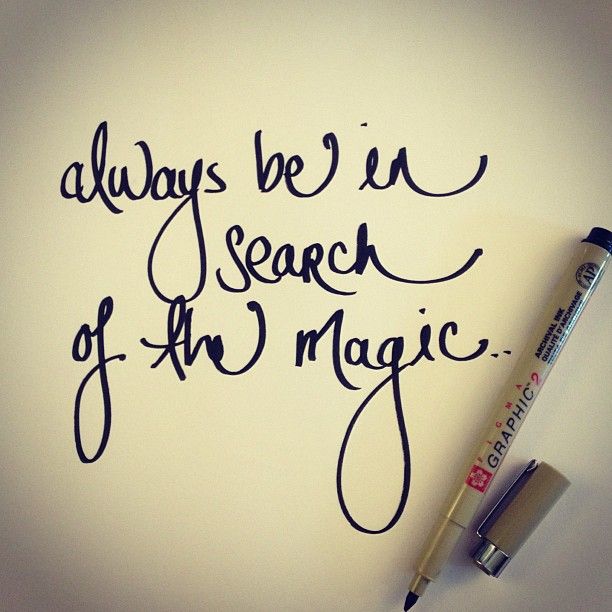 always be in
search
of the magic..
ARCHIVAL INK
QUALITÉ D'ARCHIVAGE
PIGMA
GRAPHIC™ 2
AP